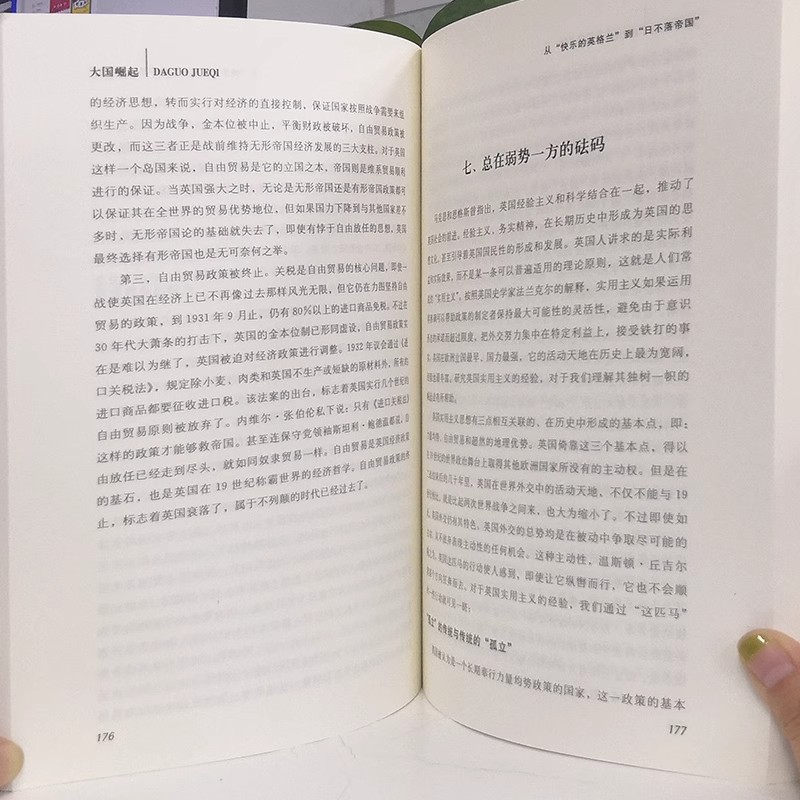 大国崛起 DAGUO JUEQI
的经济思想，转而实行对经济的直接控制，保证国家按照战争需要来组
织生产。因为战争，金本位被中止、平衡财政被破坏，自由贸易政策被
更改，而这三者正是战前维持无形帝国经济发展的三大支柱。对于英国
这样一个岛国来说，自由贸易是它的立国之本，帝国则是维系贸易顺利
进行的保证。当英国强大之时，无论是无形帝国还是有形帝国政策都可
以保证其在全世界的贸易优势地位，但如果国力下降到与其他国家差不
多时，无形帝国论的基础就失去了，即使有悖于自由放任的思想，英国
最终选择有形帝国也是无可奈何之举。
第三，自由贸易政策被终止。关税是自由贸易的核心问题，即使一
战使英国在经济上已不再像过去那样风光无限，但它仍在力图坚持自由
贸易的政策，到 1931 年 9 月止，仍有 80%以上的进口商品免税。不过在
30 年代大萧条的打击下，英国的金本位制已形同虚设，自由贸易政策实
在是难以为继了，英国被迫对经济政策进行调整。1932 年议会通过《进
口关税法》，规定除小麦、肉类和英国不生产或短缺的原材料外，所有的
进口商品都要征收进口税。该法案的出台，标志着英国实行几个世纪的
自由贸易原则被放弃了。内维尔·张伯伦私下说：只有《进口关税法》
这样的政策才能够救帝国。甚至连保守党领袖斯坦利·鲍德温都说，自
由放任已经走到尽头，就如同奴隶贸易一样。自由贸易是英国经济政策
的基石，也是英国在 19 世纪称霸世界的经济哲学。自由贸易政策的终
止，标志着英国衰落了，属于不列颠的时代已经过去了。
176
从“快乐的英格兰”到“日不落帝国”
七、总在弱势一方的砝码
马克思和恩格斯曾指出，英国经验主义和科学结合在一起，推动了
英国社会的前进。经验主义、务实精神，在长期历史中形成为英国的思
想文化，甚至引导着英国国民性的形成和发展。英国人讲求的是实际利
益和实际效果，而不是某一条可以普遍适用的理论原则，这就是人们常
说的“实用主义”。按照英国史学家法兰克尔的解释，实用主义如果运用
得当可以帮助政策的制定者保持最大可能性的灵活性，避免由于意识
形态的束缚而超过限度，把外交努力集中在特定利益上，接受铁打的事
实。英国在欧洲立国最早、国力最强，它的活动天地在历史上最为宽阔，
经验也最丰富。研究英国实用主义的经验，对于我们理解其独树一帜的
崛起会有所帮助。
英国实用主义思想有三点相互关联的、在历史中形成的基本点，即：
力量均势、自由贸易和超然的地理优势。英国倚靠这三个基本点，得以
世纪的世界政治舞台上取得其他欧洲国家所没有的主动权。但是在
后的几十年里，英国在世界外交中的活动天地、不仅不能与 19
世纪相比，就是比起两次世界战争之间来，也大为缩小了。不过即使如
此，英国外交仍有其特色。英国外交的总势均是在被动中争取尽可能的
主动，从不放弃表现主动性的任何机会。这种主动性、温斯顿·丘吉尔
英国这匹马的行动使人感到，即使让它纵辔而行，它也不会顺
方向狂奔而去，对于英国实用主义的经验，我们通过“这匹马”
的行动就可见一斑：
“孤立”的传统与传统的“孤立”
英国被认为是一个长期奉行力量均势政策的国家，这一政策的基本
177